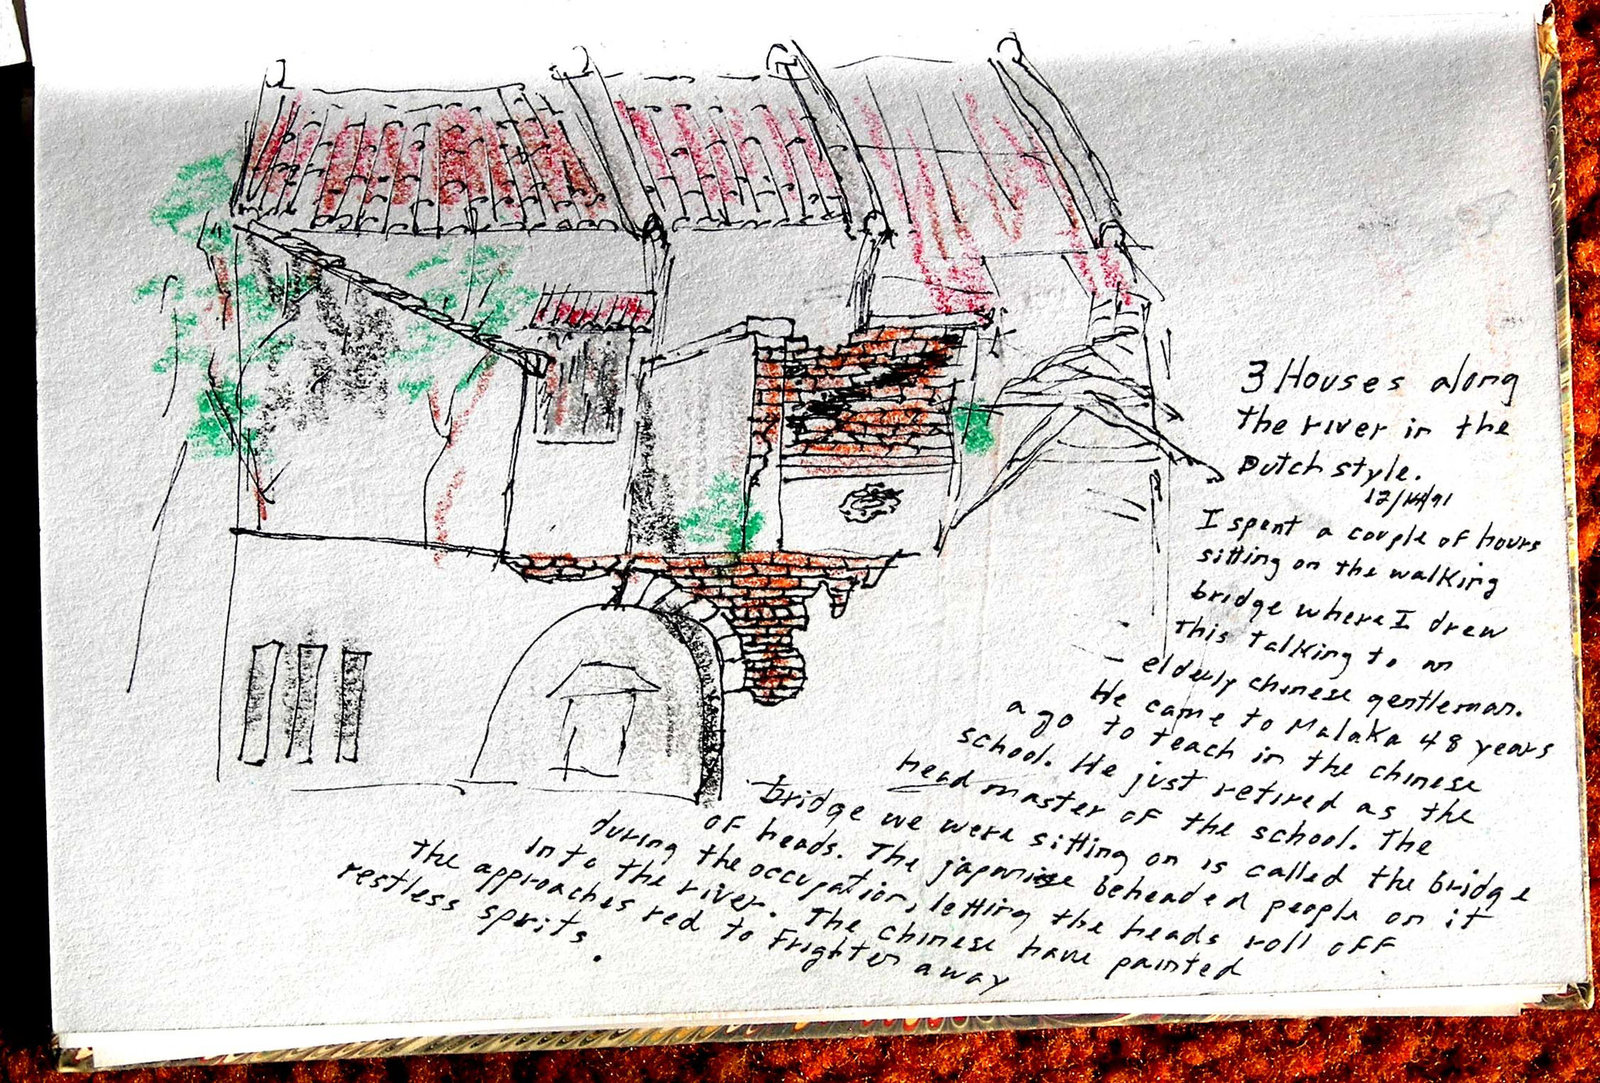 3 Houses along
the river in the
Dutch style.
12/14/91
I spent a couple of hours
sitting on the walking
bridge where I drew
this talking to an
– elderly chinese gentleman.
He came to Malaka 48 years
a go to teach in the chinese
school. He just retired as the
head master of the school. The
bridge we were sitting on is called the bridge
of heads. The japanise beheaded people on it
during the occupation, letting the heads roll off
into the river. The chinese have painted
the approaches red to frighten away
restless sprits.